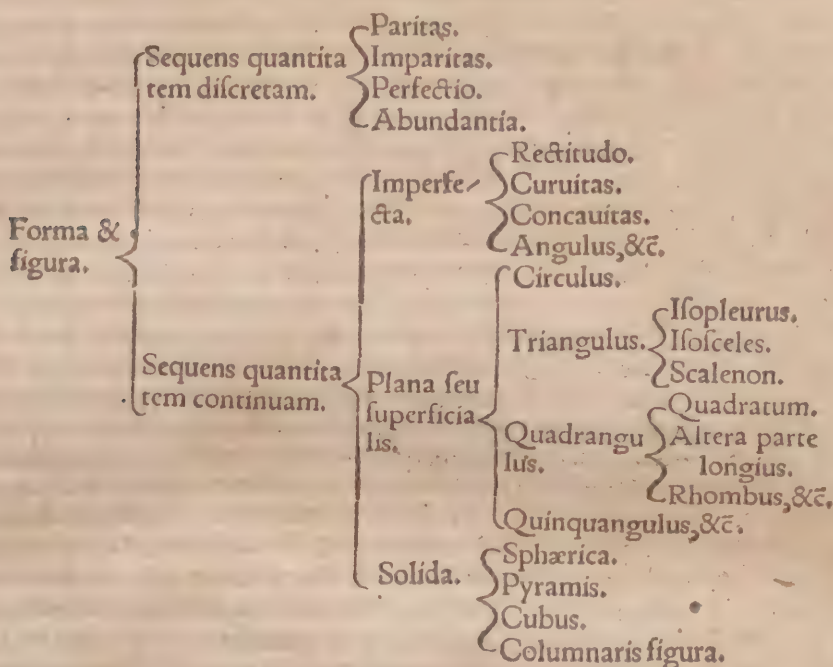 Forma &
figura.
Sequens quantita
tem diſcretam.
Paritas.
Imparitas.
Perfectio.
Abundantia.
Sequens quantita
tem continuam.
Imperfe⸗
cta.
Rectitudo.
Curuitas.
Concauitas.
Angulus, &c̄.
Plana ſeu
ſuperficia
lis.
Circulus.
Triangulus.
Iſopleurus.
Iſoſceles.
Scalenon.
Quadrangu
lus.
Quadratum.
Altera parte
longius.
Rhombus, &c̄.
Quinquangulus, &c̄.
Solida.
Sphærica.
Pyramis.
Cubus.
Columnaris figura.